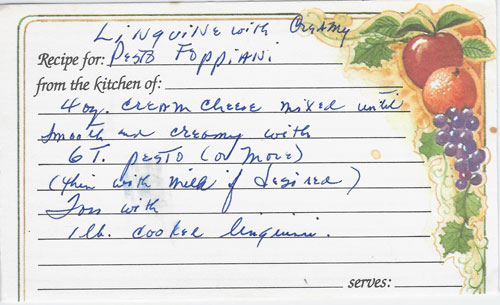 LINQUINE with CREAMY
Recipe for: PESTO FOPPIANI
from the kitchen of:
4 oz. CREAM CHEESE mixed until
smooth and creamy with
6 T. pesto (or more)
(thin with milk if desired)
Toss with
1 lb. cooked linguini.
serves: